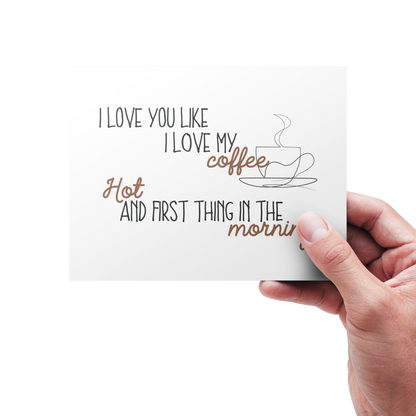 I LOVE YOU LIKE
I LOVE MY
coffee
Hot
AND FIRST THING IN THE
mornin